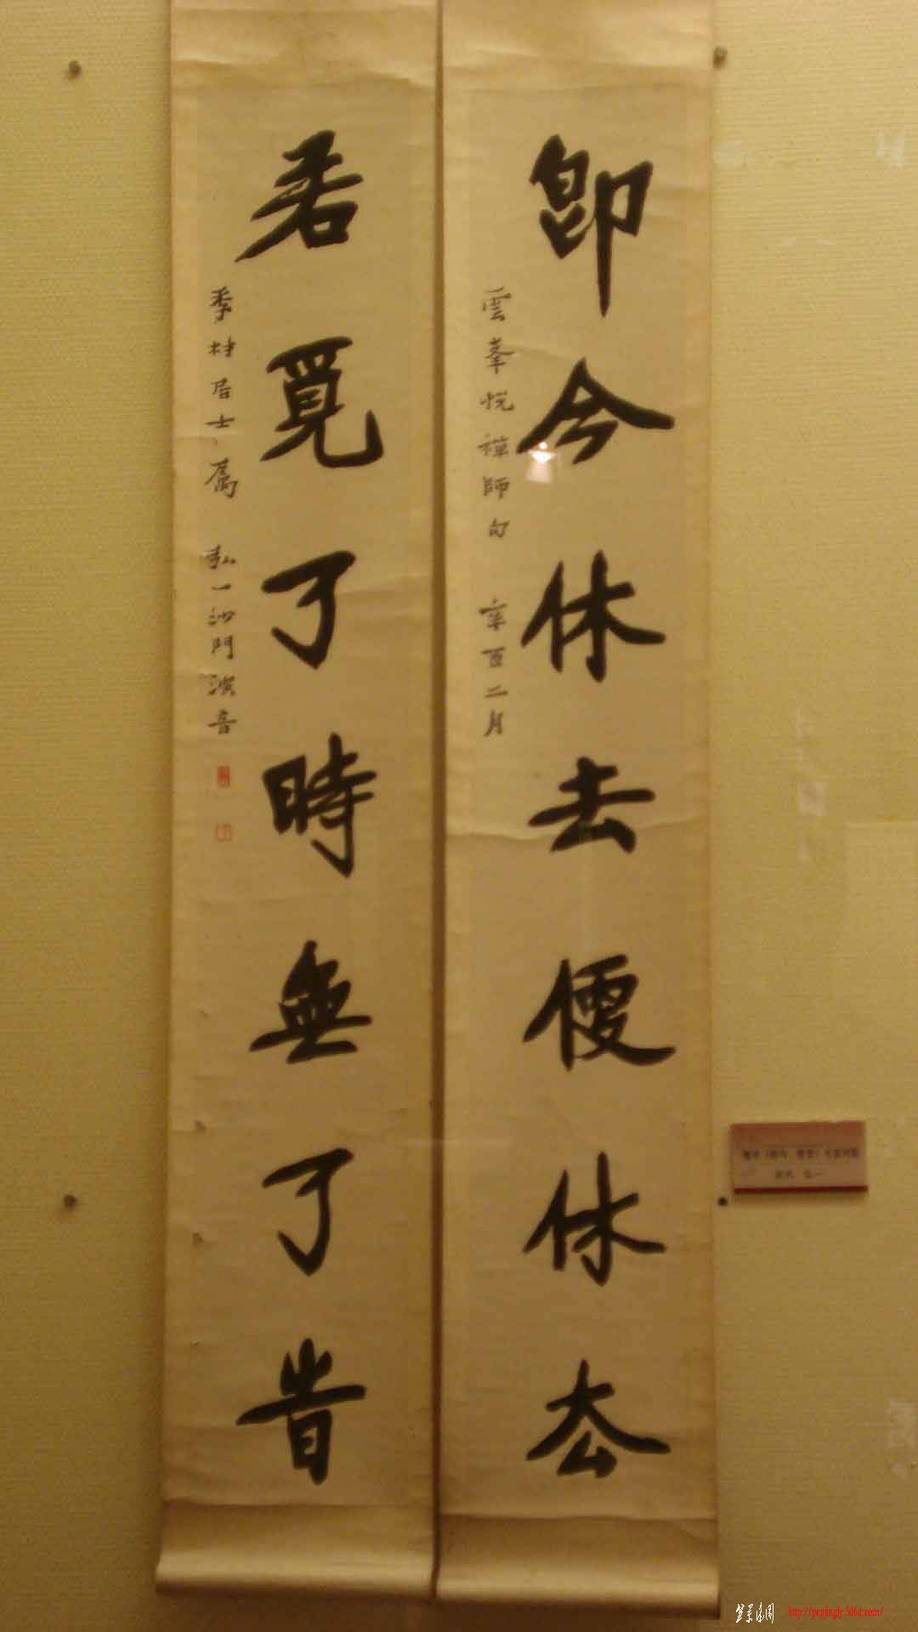 即今休去便休去
雲峯悅禪師句 辛酉二月
若覓了時無了旹
季村居士屬 弘一沙門演音